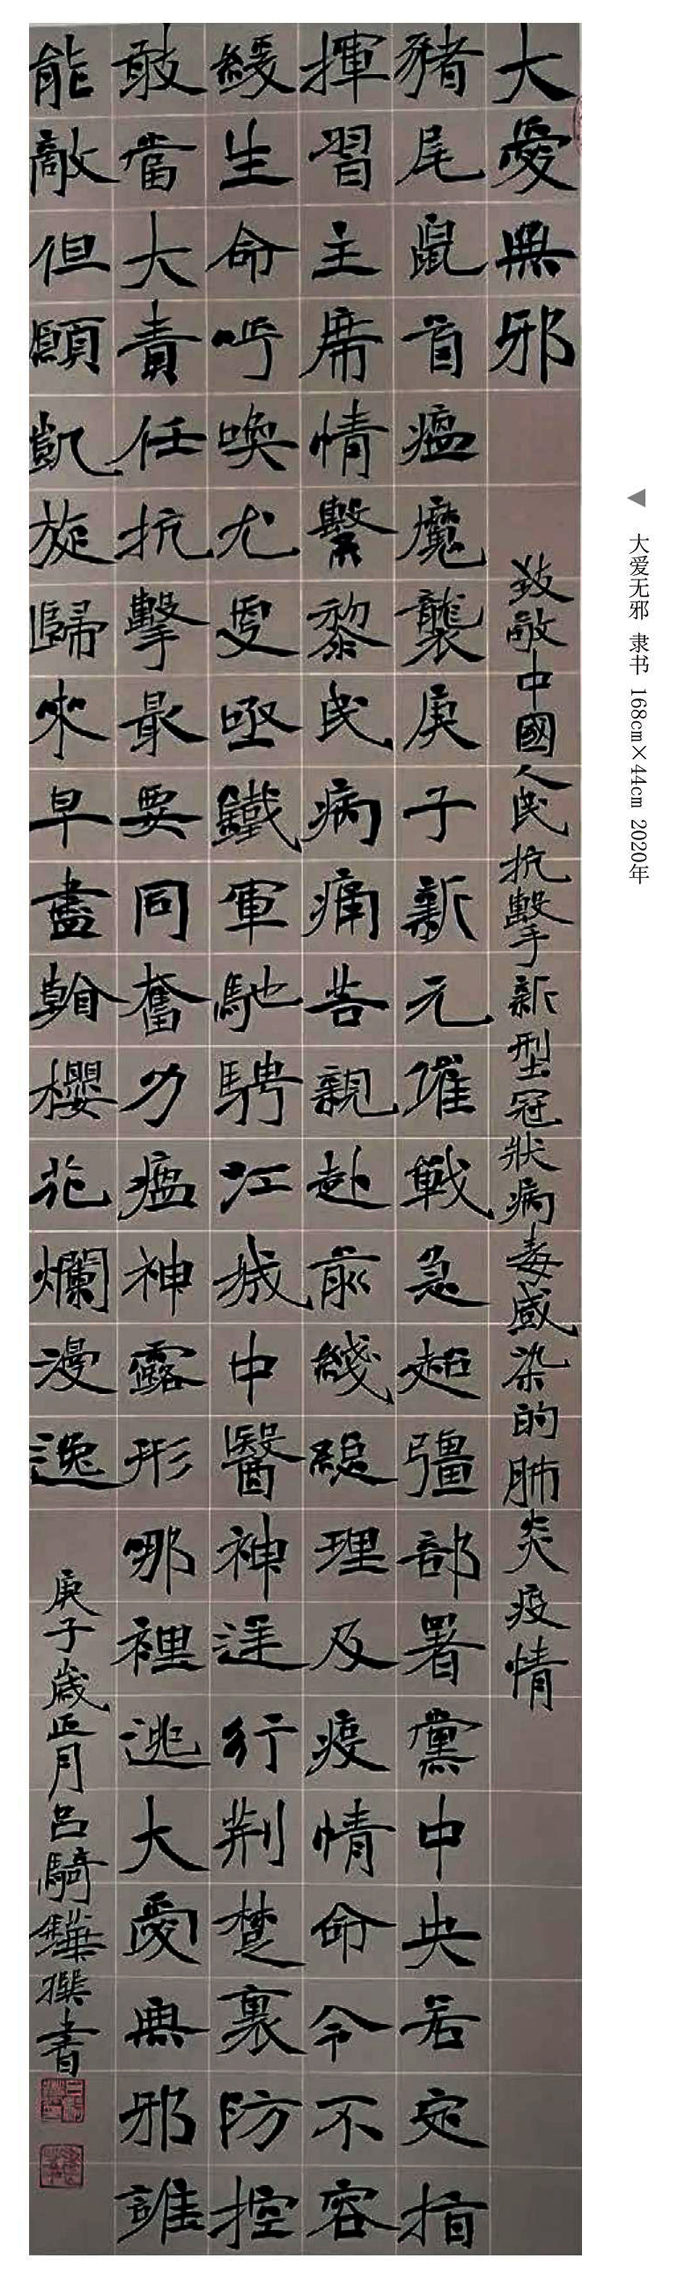 大愛無邪 致敬中國人民抗擊新型冠狀病毒感染的肺炎疫情
豬尾鼠首瘟魔襲庚子新元催戰急超彊部署黨中央若定指
揮習主席情繫黎民病痛苦親赴前綫總理及疫情命令不容
緩生命呼喚尤更亟鐵軍馳騁江城中醫神速行荆楚裏防控
敢當大責任抗擊最要同奮力瘟神露形哪裡逃大愛無邪誰
能敵但願凱旋歸來早盡翰櫻花爛漫逸
庚子歲正月呂騎鏵撰書
◀ 大爱无邪 隶书 168cm×44cm 2020年